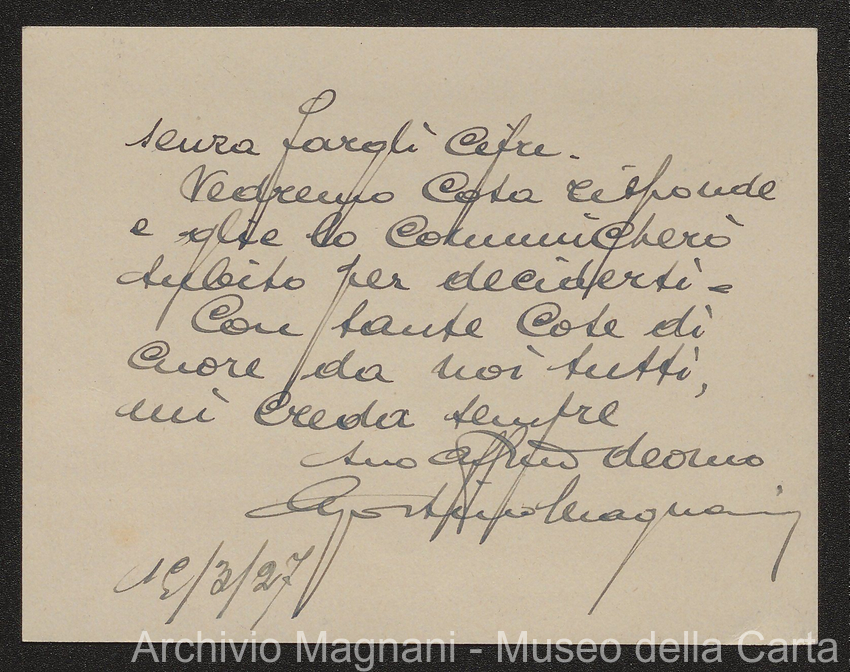 senza fargli cifre.
Vedremo cosa risponde
e glie lo comunicherò
subito per decidersi =
Con tante cose di
cuore da noi tutti,
mi creda sempre
suo affmo
Agostino Magnani
/3/27
Archivio Magnani - Museo della Carta